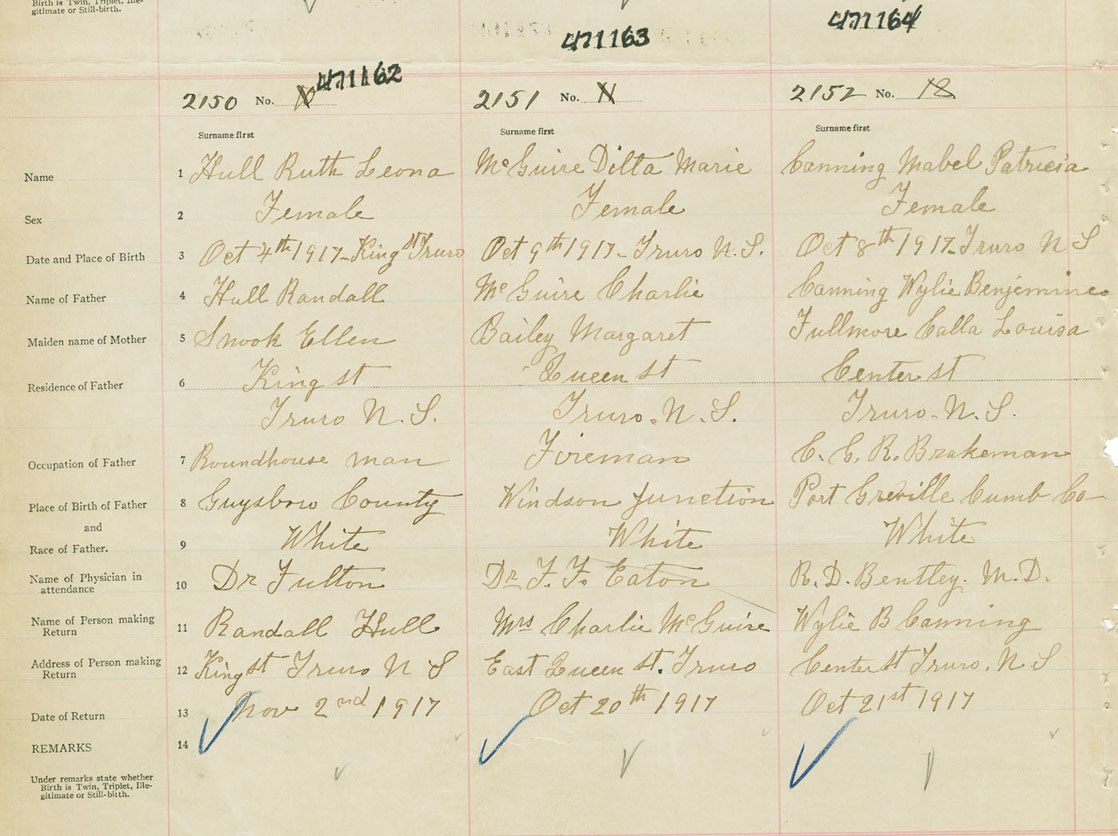 Birth is Twin, Triplet, Ille-
gitimate or Still-birth.
471163
471164
471162
2150 No.
2151 No.
2152 No. 18
Surname first
Surname first
Surname first
Name 1 Hull Ruth Leona McGuire Dilta Marie Canning Mabel Patricia
Sex 2 Female Female Female
Date and Place of Birth 3 Oct 4th 1917 - King St Truro Oct 9th 1917 - Truro N.S. Oct 8th 1917 - Truro N S
Name of Father 4 Hull Randall McGuire Charlie Canning Wylie Benjemine
Maiden name of Mother 5 Snook Ellen Bailey Margaret Fullmore Calla Louisa
Residence of Father 6 King st Queen st Center st
Truro N.S. Truro. N.S. Truro. N.S.
Occupation of Father 7 Roundhouse man Fireman C. G. R. Brakeman
Place of Birth of Father 8 Guysboro County Windson Junction Port Greville Cumb Co
and
Race of Father. 9 White White White
Name of Physician in
attendance 10 Dr Fulton Dr F. F. Eaton R. D. Bentley. M.D.
Name of Person making
Return 11 Randall Hull Mrs Charlie McGuire Wylie B Canning
Address of Person making
Return 12 King st Truro N S East Queen st. Truro Center st Truro. N S
Date of Return 13 Nov 2nd 1917 Oct 20th 1917 Oct 21st 1917
REMARKS 14
Under remarks state whether
Birth is Twin, Triplet, Ille-
gitimate or Still-birth.